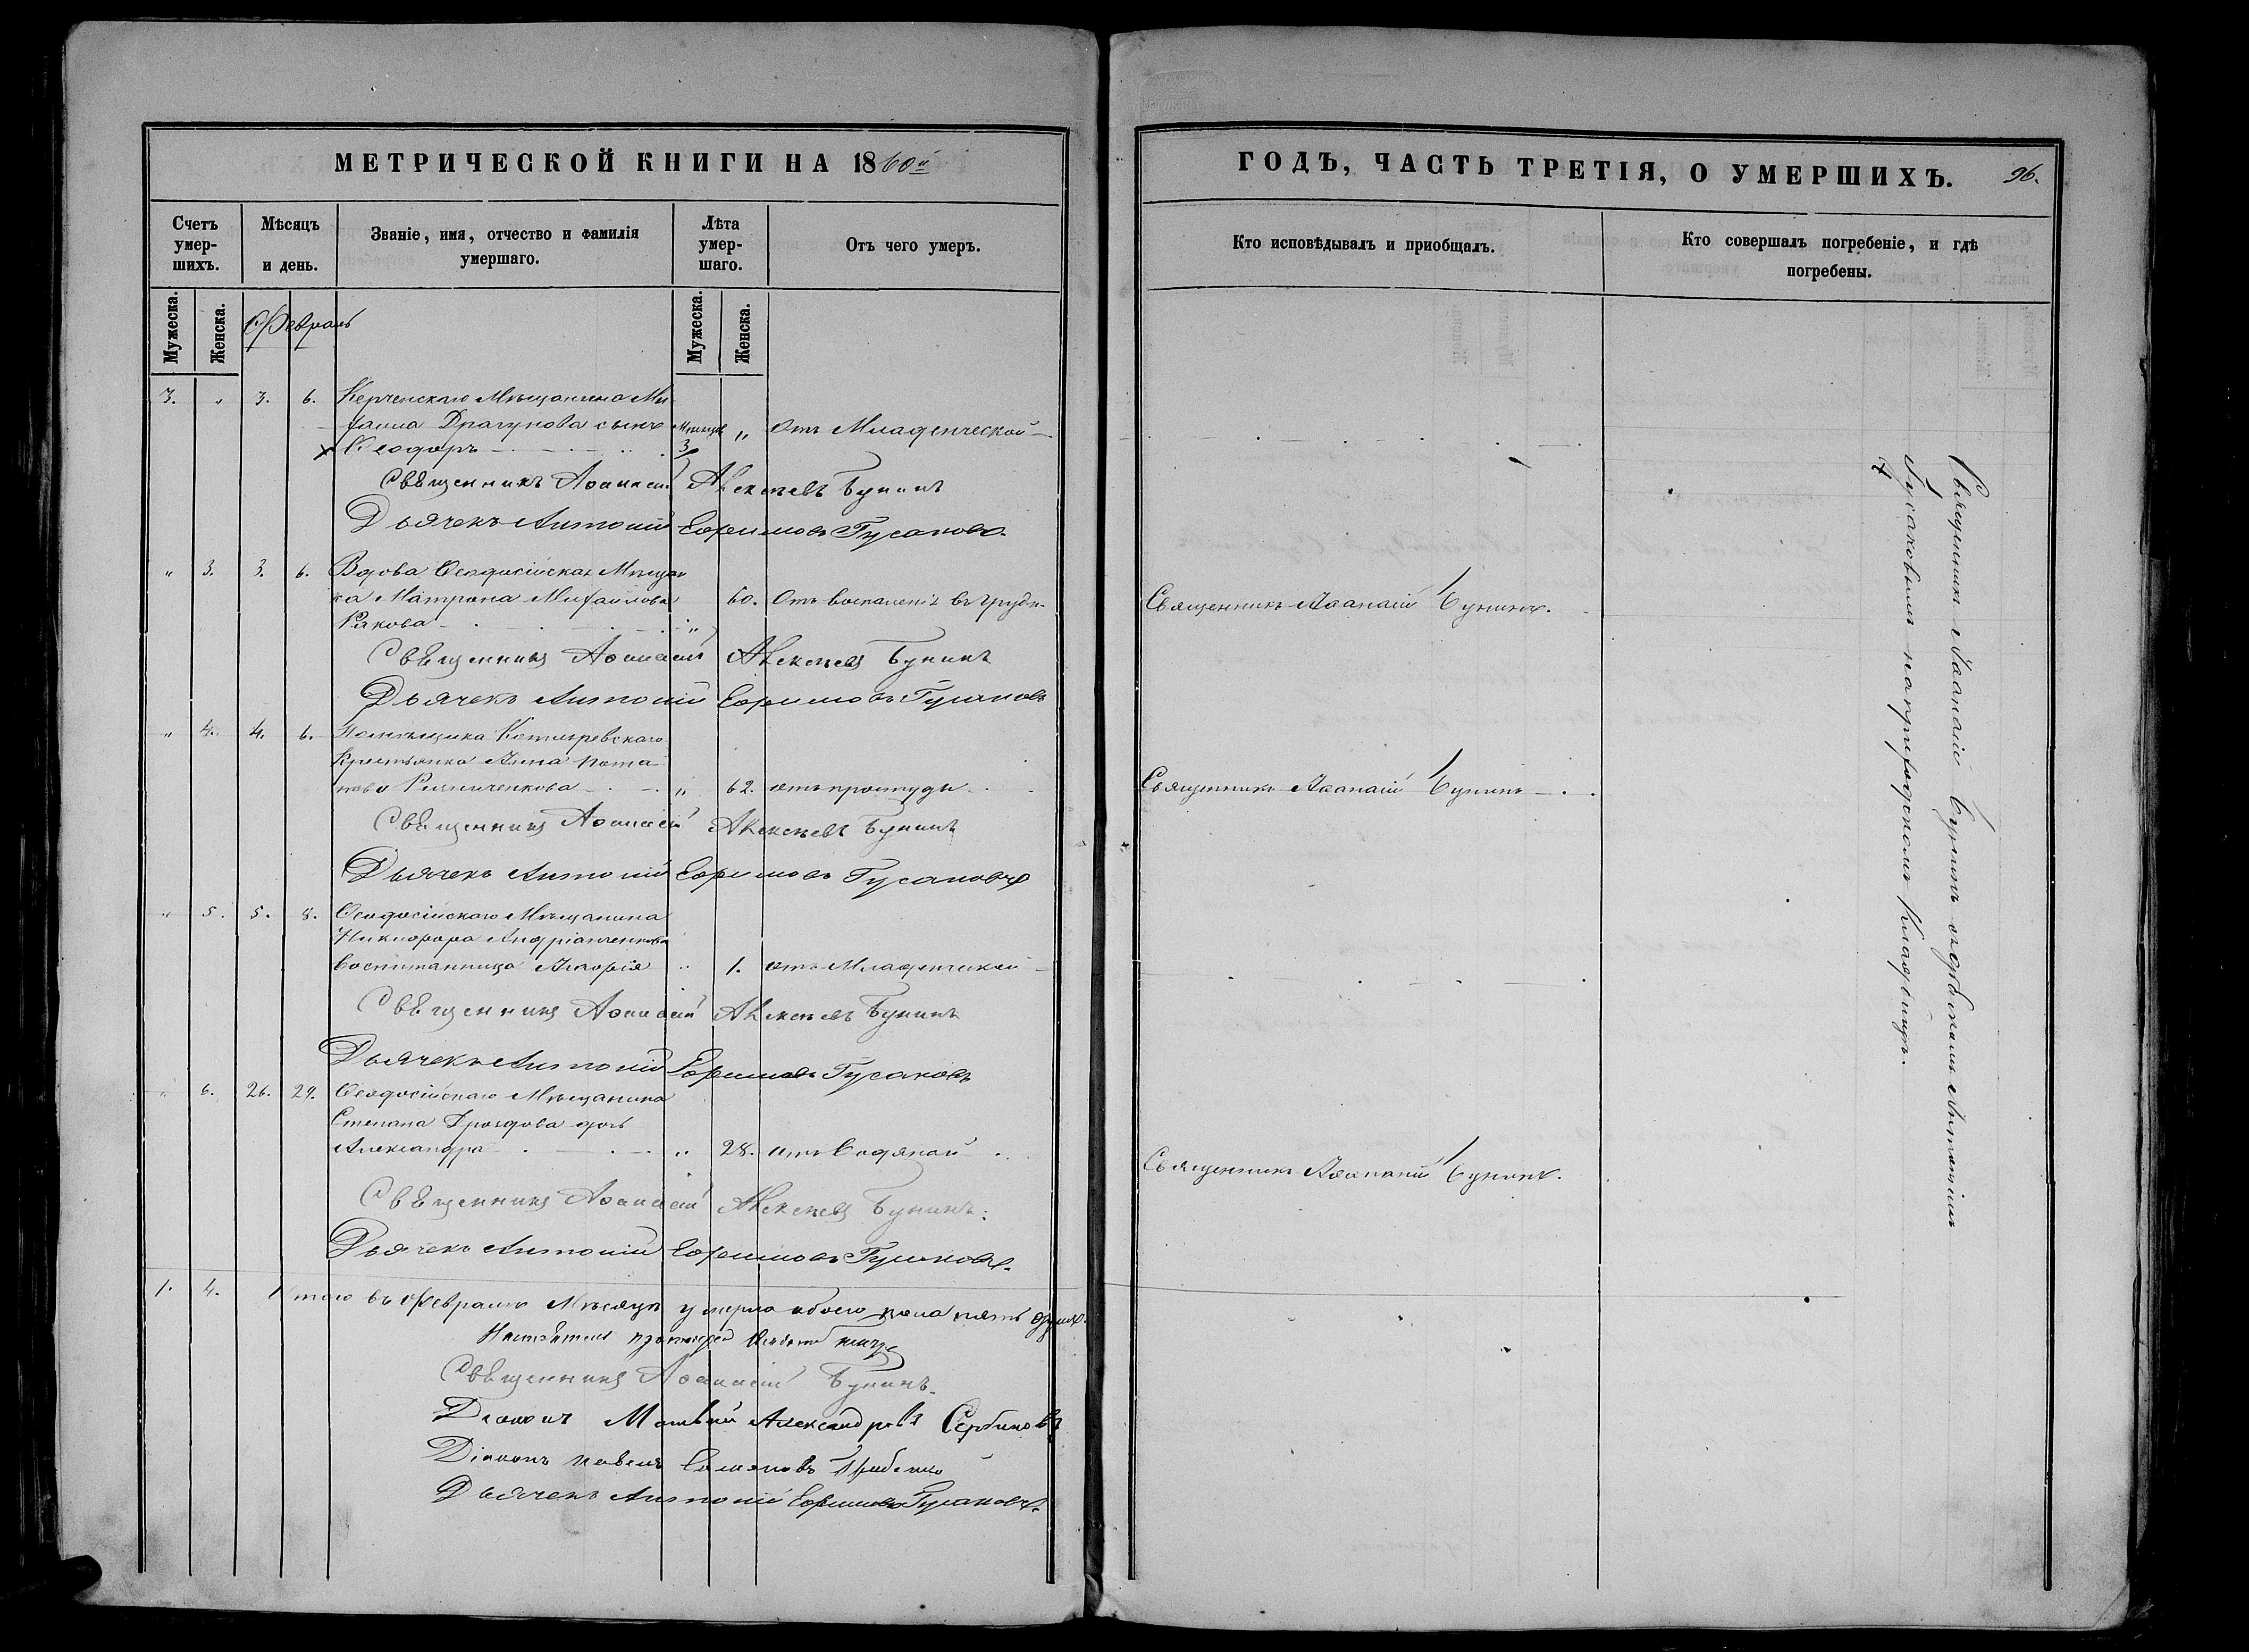 МЕТРИЧЕСКОЙ КНИГИ НА 1860й
Счетъ умер-шихъ.
Мѣсяцъ и день.
Званіе, имя, отчество и фамилія умершаго.
Лѣта умер-шаго.
Отъ чего умеръ.
Мужеска. Женска.
Февраль
Мужеска. Женска.
3. „ 3. 6. Керченскаго Мѣщанина Ми
хаила Драгунова сынъ Мѣсяцев „ Отъ Младенческой
Ѳеодоръ 3
Священникъ Аѳанасій Алексѣевъ Бунинъ
Дьячекъ Антоній Ефимовъ Гусаковъ.
„ 3. 3. 6. Вдова Ѳеодосійская Мѣщан
ка Матрона Михайлова 60. Отъ воспаленія въ груди.
Ракова „
Священникъ Аѳанасій Алексѣевъ Бунинъ
Дьячекъ Антоній Ефимовъ Гусаковъ
„ 4. 4. 6. Помѣщика
Крестьянка Анна Пота
пова „ 62. отъ простуды
Священникъ Аѳанасій Алексѣевъ Бунинъ
Дьячекъ Антоній Ефимовъ Гусаковъ
„ 5. 5. 8. Ѳеодосійскаго Мѣщанина
Никифора Андріанченкова
воспитанница „ 1. отъ Младенческой
Священникъ Аѳанасій Алексѣевъ Бунинъ
Дьячекъ Антоній Ефимовъ Гусаковъ
„ 6. 26. 29. Ѳеодосійскаго Мѣщанина
Степана Дроздова дочь
Александра „ 28. отъ Водяной
Священникъ Аѳанасій Алексѣевъ Бунинъ.
Дьячекъ Антоній Ефимовъ Гусаковъ.
1. 4. Итого въ Февралѣ Мѣсяцѣ умерло обоего пола пять душъ.
Настоятель протоіерей
Священникъ Аѳанасій Бунинъ.
Діаконъ Матвѣй Александровъ Сербиновъ
Діаконъ Павелъ
Дьячекъ Антоній Ефимовъ Гусаковъ.
ГОДЪ, ЧАСТЬ ТРЕТІЯ, О УМЕРШИХЪ. 96.
Кто исповѣдывалъ и приобщалъ.
Кто совершалъ погребеніе, и гдѣ погребены.
Священникъ Аѳанасій Бунинъ.
Священникъ Аѳанасій Бунинъ
Священникъ Аѳанасій Бунинъ.
Священникъ Аѳанасій Бунинъ съ дьячкомъ Антоніемъ
Гусаковымъ на приходскомъ кладбищѣ.